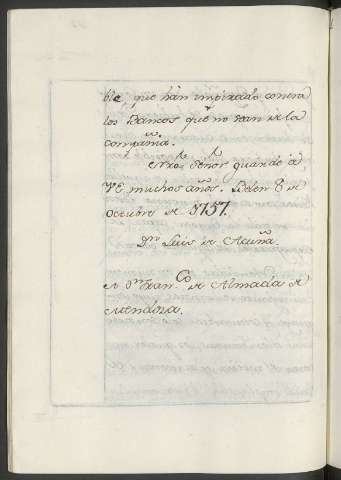 ble, que han empezado contra
los Barcos que no sean de la
compañia.
Nro. Señor guarde à
VE muchos años. Belen 8 de
Octubre de 1757.
Dn. Luis de Acuña.
A Dn. Franco. de Almada de
Mendosa.